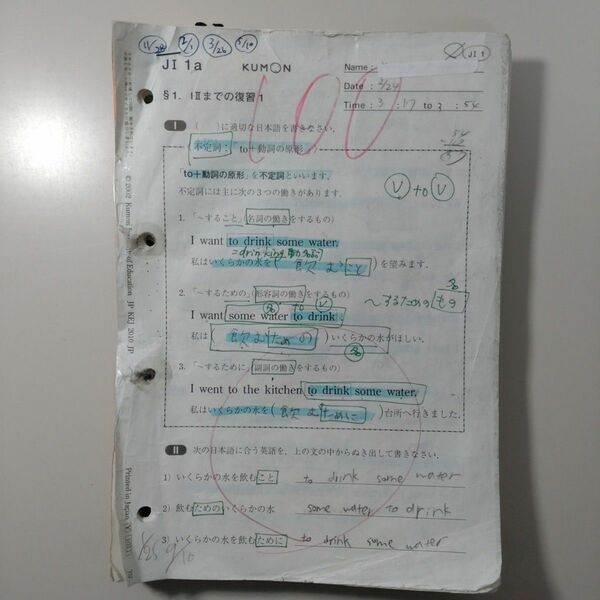 11/28 2/1 3/26 5/10
JI 1
JI 1a KUMON
Name :
Date : 3/24
Time : 3 : 17 to 3 : 54
100
§1. IⅡまでの復習1
I ( )に適切な日本語を書きなさい.
不定詞: to+動詞の原形
「to+動詞の原形」を不定詞といいます.
不定詞には主に次の3つの働きがあります.
V to V
1. 「~すること」(名詞の働きをするもの)
I want to drink some water.
私はいくらかの水を(飲むこと)を望みます.
2. 「~するための」(形容詞の働きをするもの)
~するためのもの
名 to V
I want some water to drink.
私は(飲むための)いくらかの水がほしい.
名
3. 「~するために」(副詞の働きをするもの)
I went to the kitchen to drink some water.
私はいくらかの水を(飲むために)台所へ行きました.
II 次の日本語に合う英語を, 上の文の中からぬき出して書きなさい.
1) いくらかの水を飲むこと to drink some water
2) 飲むためのいくらかの水 some water to drink
3) いくらかの水を飲むために to drink some water